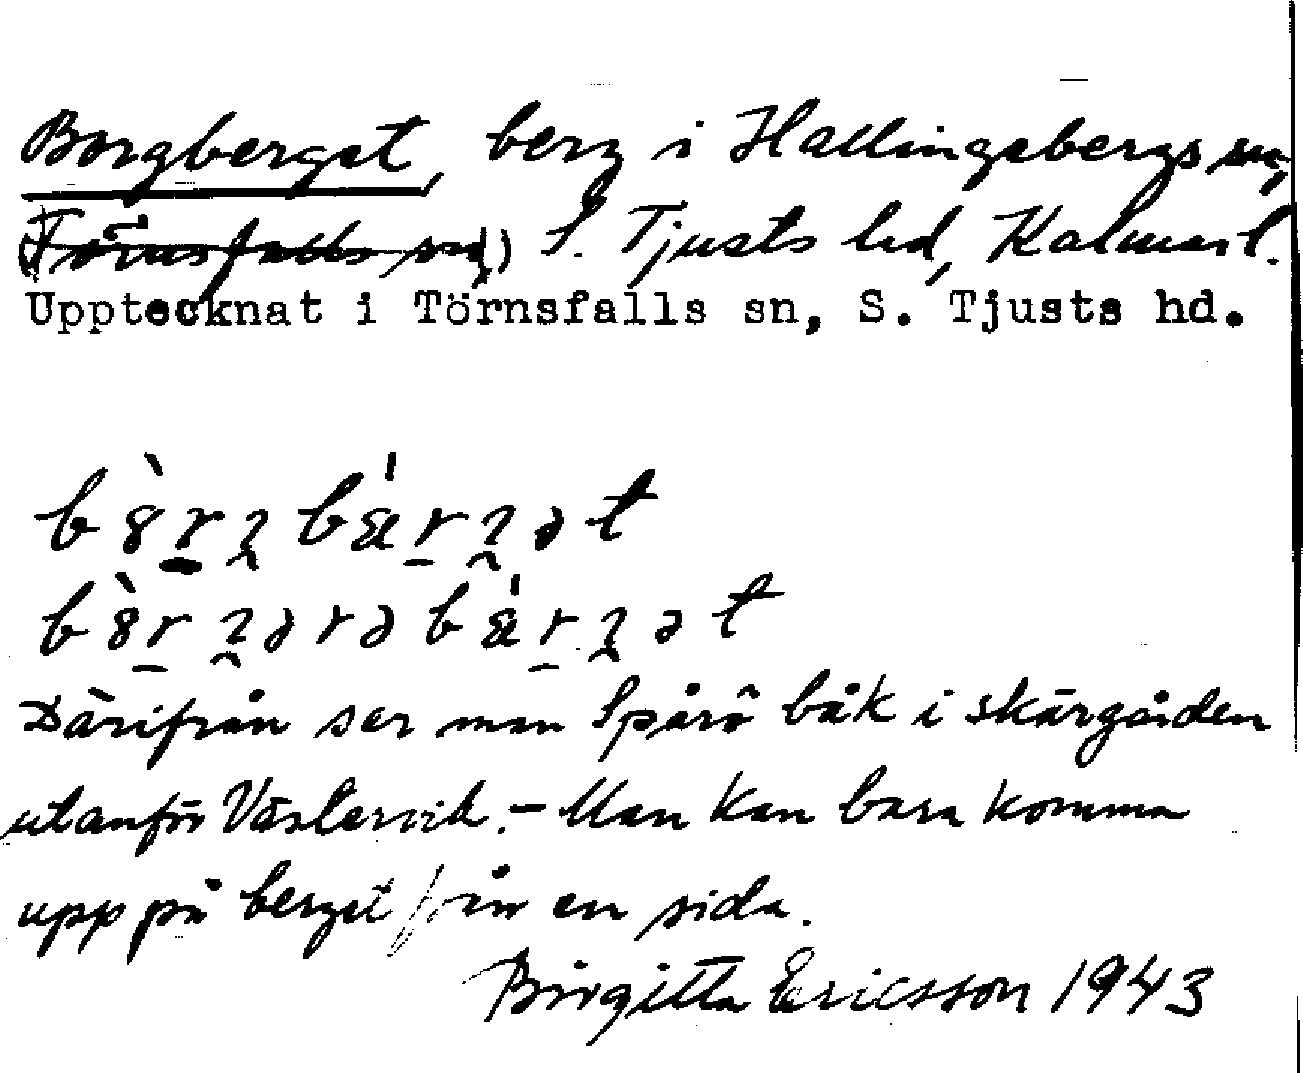 Borgberget, berg i Hallingebergs sn,
(Törnsfalls sn,) S. Tjusts hd, Kalmar l.
Upptecknat i Törnsfalls sn, S. Tjusts hd.
Därifrån ser man Spårö båk i skärgården
utanför Västervik. – Man kan bara komma
upp på berget från en sida.
Birgitta Ericsson 1943